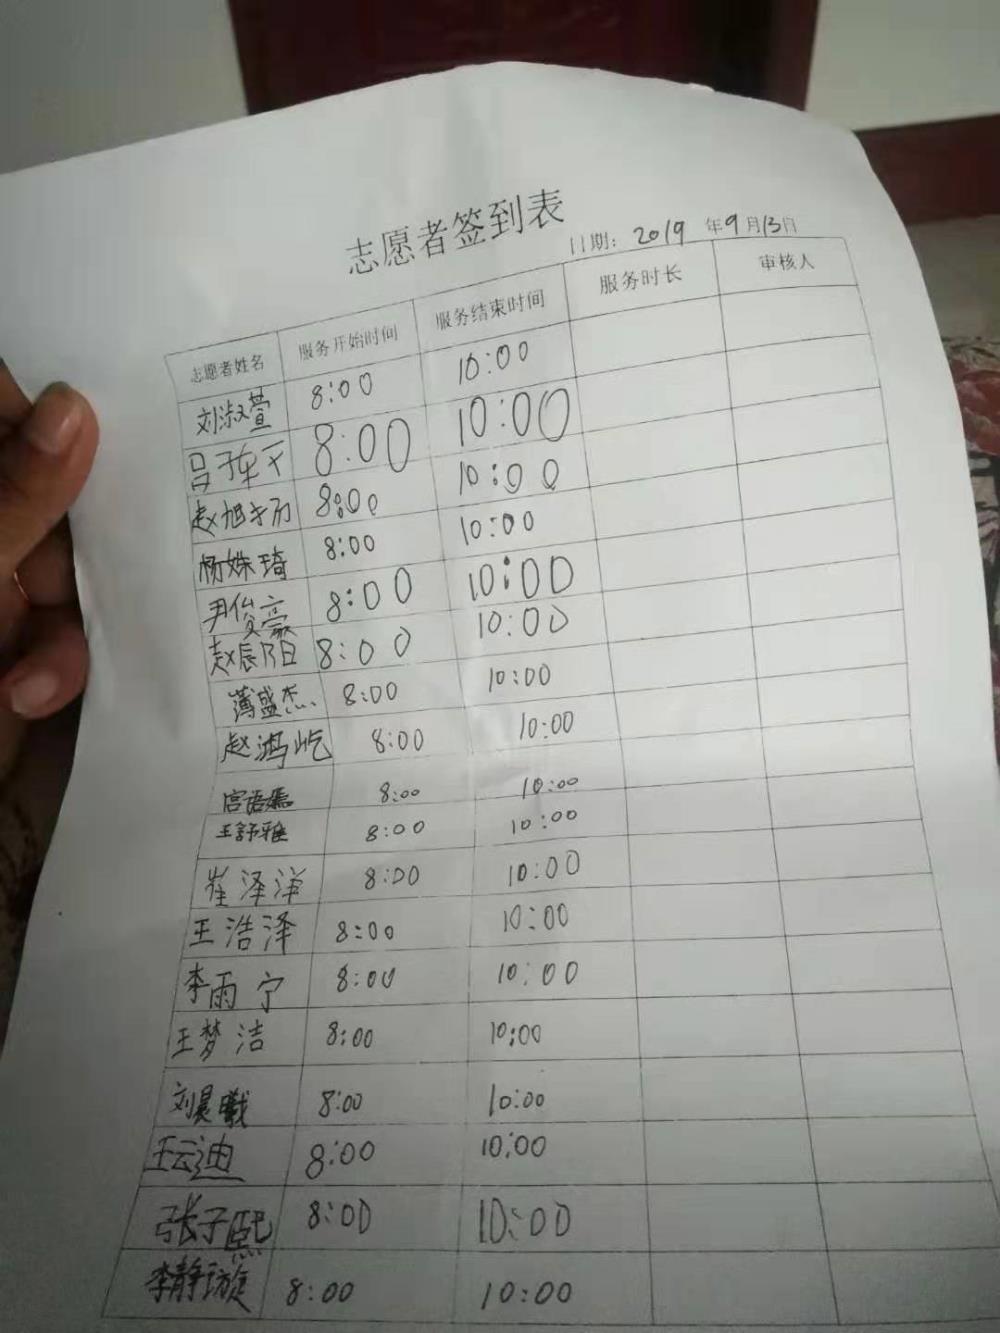 志愿者签到表
日期: 2019 年9月13日
志愿者姓名 服务开始时间 服务结束时间 服务时长 审核人
刘淑萱 8:00 10:00
8:00 10:00
赵旭扬 8:00 10:00
杨姝琦 8:00 10:00
尹俊豪 8:00 10:00
赵辰阳 8:00 10:00
薄盛杰 8:00 10:00
赵鸿屹 8:00 10:00
宫语嫣 8:00 10:00
王舒雅 8:00 10:00
崔泽洋 8:00 10:00
王浩泽 8:00 10:00
李雨宁 8:00 10:00
王梦洁 8:00 10:00
刘晨曦 8:00 10:00
王云迪 8:00 10:00
张子熙 8:00 10:00
李静璇 8:00 10:00